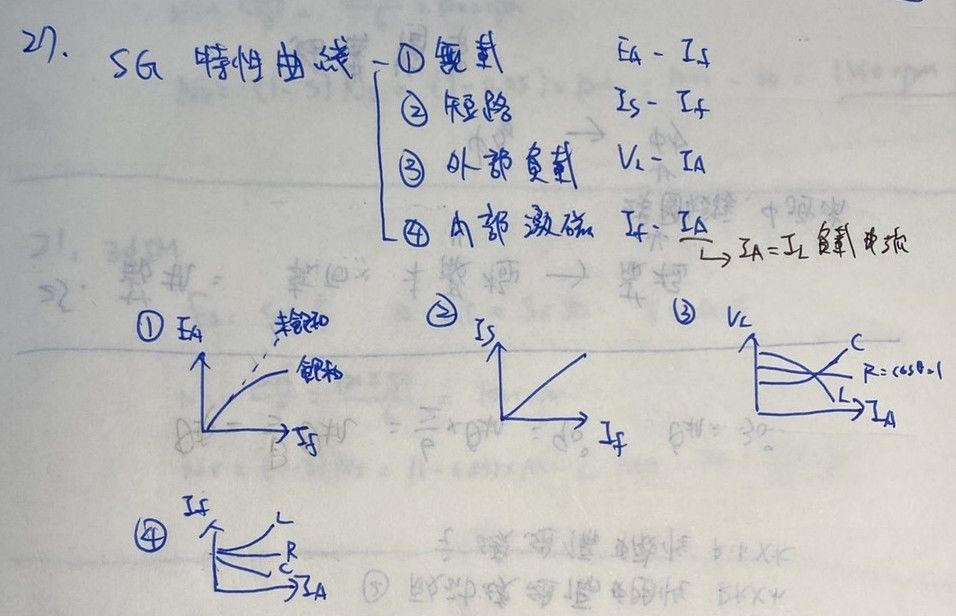 27. SG 特性曲线 ① 無載 EA - If
② 短路 Is - If
③ 外部負載 VL - IA
④ 內部激磁 If - IA
↳ IA = IL 負載電流
① EA 未飽和 飽和 If
② Is If
③ VL C R = cosθ=1 L IA
④ If L R C IA